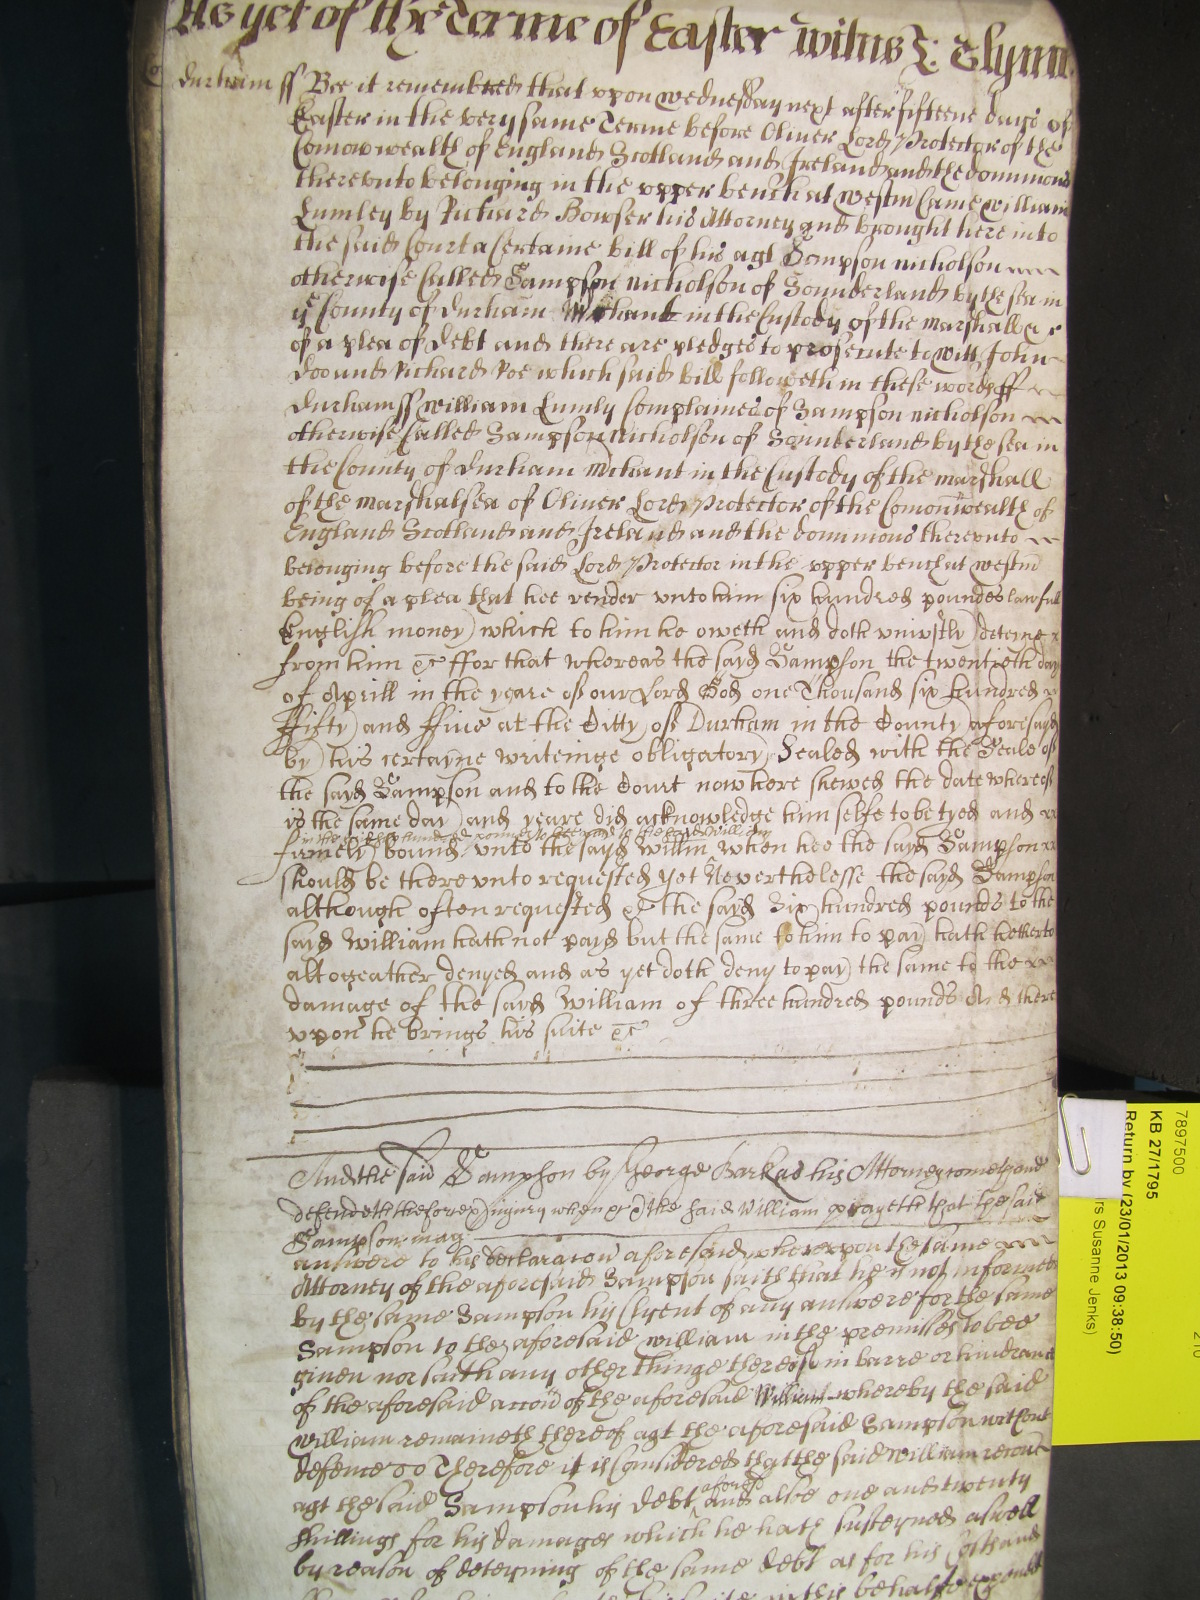 As yet of the Terme of Easter witnes J: Glynn
Durham ss Bee it remembred that upon wednesday next after fifteene days of
Easter in the very same Terme before Oliver Lord Protector of the
Comonwealth of England Scotland and Ireland and the dominions
thereunto belonging in the upper bench at westm Came william
Lumley by Richard Bowser his Attorney and brought here into
the said Court a Certaine bill of his agt Sampson nicholson
otherwise Called Sampson nicholson of Sounderland by the sea in
ye County of durham Mchant in the Custody of the marshall &c
of a plea of debt and there are pledges to prosecute to witt John
doo and Richard Roe which said bill followeth in these words ss
durham ss william Lumly Complaines of Sampson nicholson
otherwise Called Sampson nicholson of Sounderland by the sea in
the County of durham mchant in the Custody of the marshall
of the marshalsea of Oliver Lord Protector of the Comonwealth of
England Scotland and Ireland and the dominions thereunto
belonging before the said Lord Protector in the upper bench at westm
being of a plea that hee render unto him six hundred poundes lawful
English money which to him he oweth and doth uniustly deteine
from him &c ffor that whereas the sayd Sampson the twentieth day
of Aprill in the yeare of our Lord God one Thousand six hundred
ffifty and ffive at the Citty of Durham in the County aforesayd
by his certayne writeinge obligatory Sealed with the Seale of
the sayd Sampson and to the Court now here shewed the date whereof
is the same day and yeare did acknowledge him selfe to be tyed and
in the said six hundred pounds to bee paid to the said William
firmely bound unto the sayd Willm when hee the sayd Sampson
should be thereunto requested yet Neverthelesse the sayd Sampson
although often requested &c the sayd Six hundred pounds to the
sayd William hath not payd but the same to him to pay hath hetherto
altogeather denyed and as yet doth deny to pay the same to the
damage of the sayd William of three hundred pounds And there
upon he brings his suite &c
And the said Sampson by George Barkas his Attorney comes and
defendeth the force & iniury when &c & the said William prayeth that the said
Sampson may
answere to his declaracon aforesaid whereupon the same
Attorney of the aforesaid Sampson saith that he is not informed
by the same Sampson his Clyent of any answere for the same
Sampson to the aforesaid william in the premisses to bee
given nor saith any other thinge thereof in barre or hindrance
of the aforesaid accon of the aforesaid William whereby the said
william remaineth thereof agt the aforesaid Sampson without
defence &c Therefore it is Considered that the said william recover
aforesd
agt the said Sampson his debt and alsoe one and twenty
shillings for his damages which he hath susteyned aswell
by reason of deteyning of the same debt as for his Costs and
7897500
KB 27/1795
Return by (23/01/2013 09:38:50)
rs Susanne Jenks)